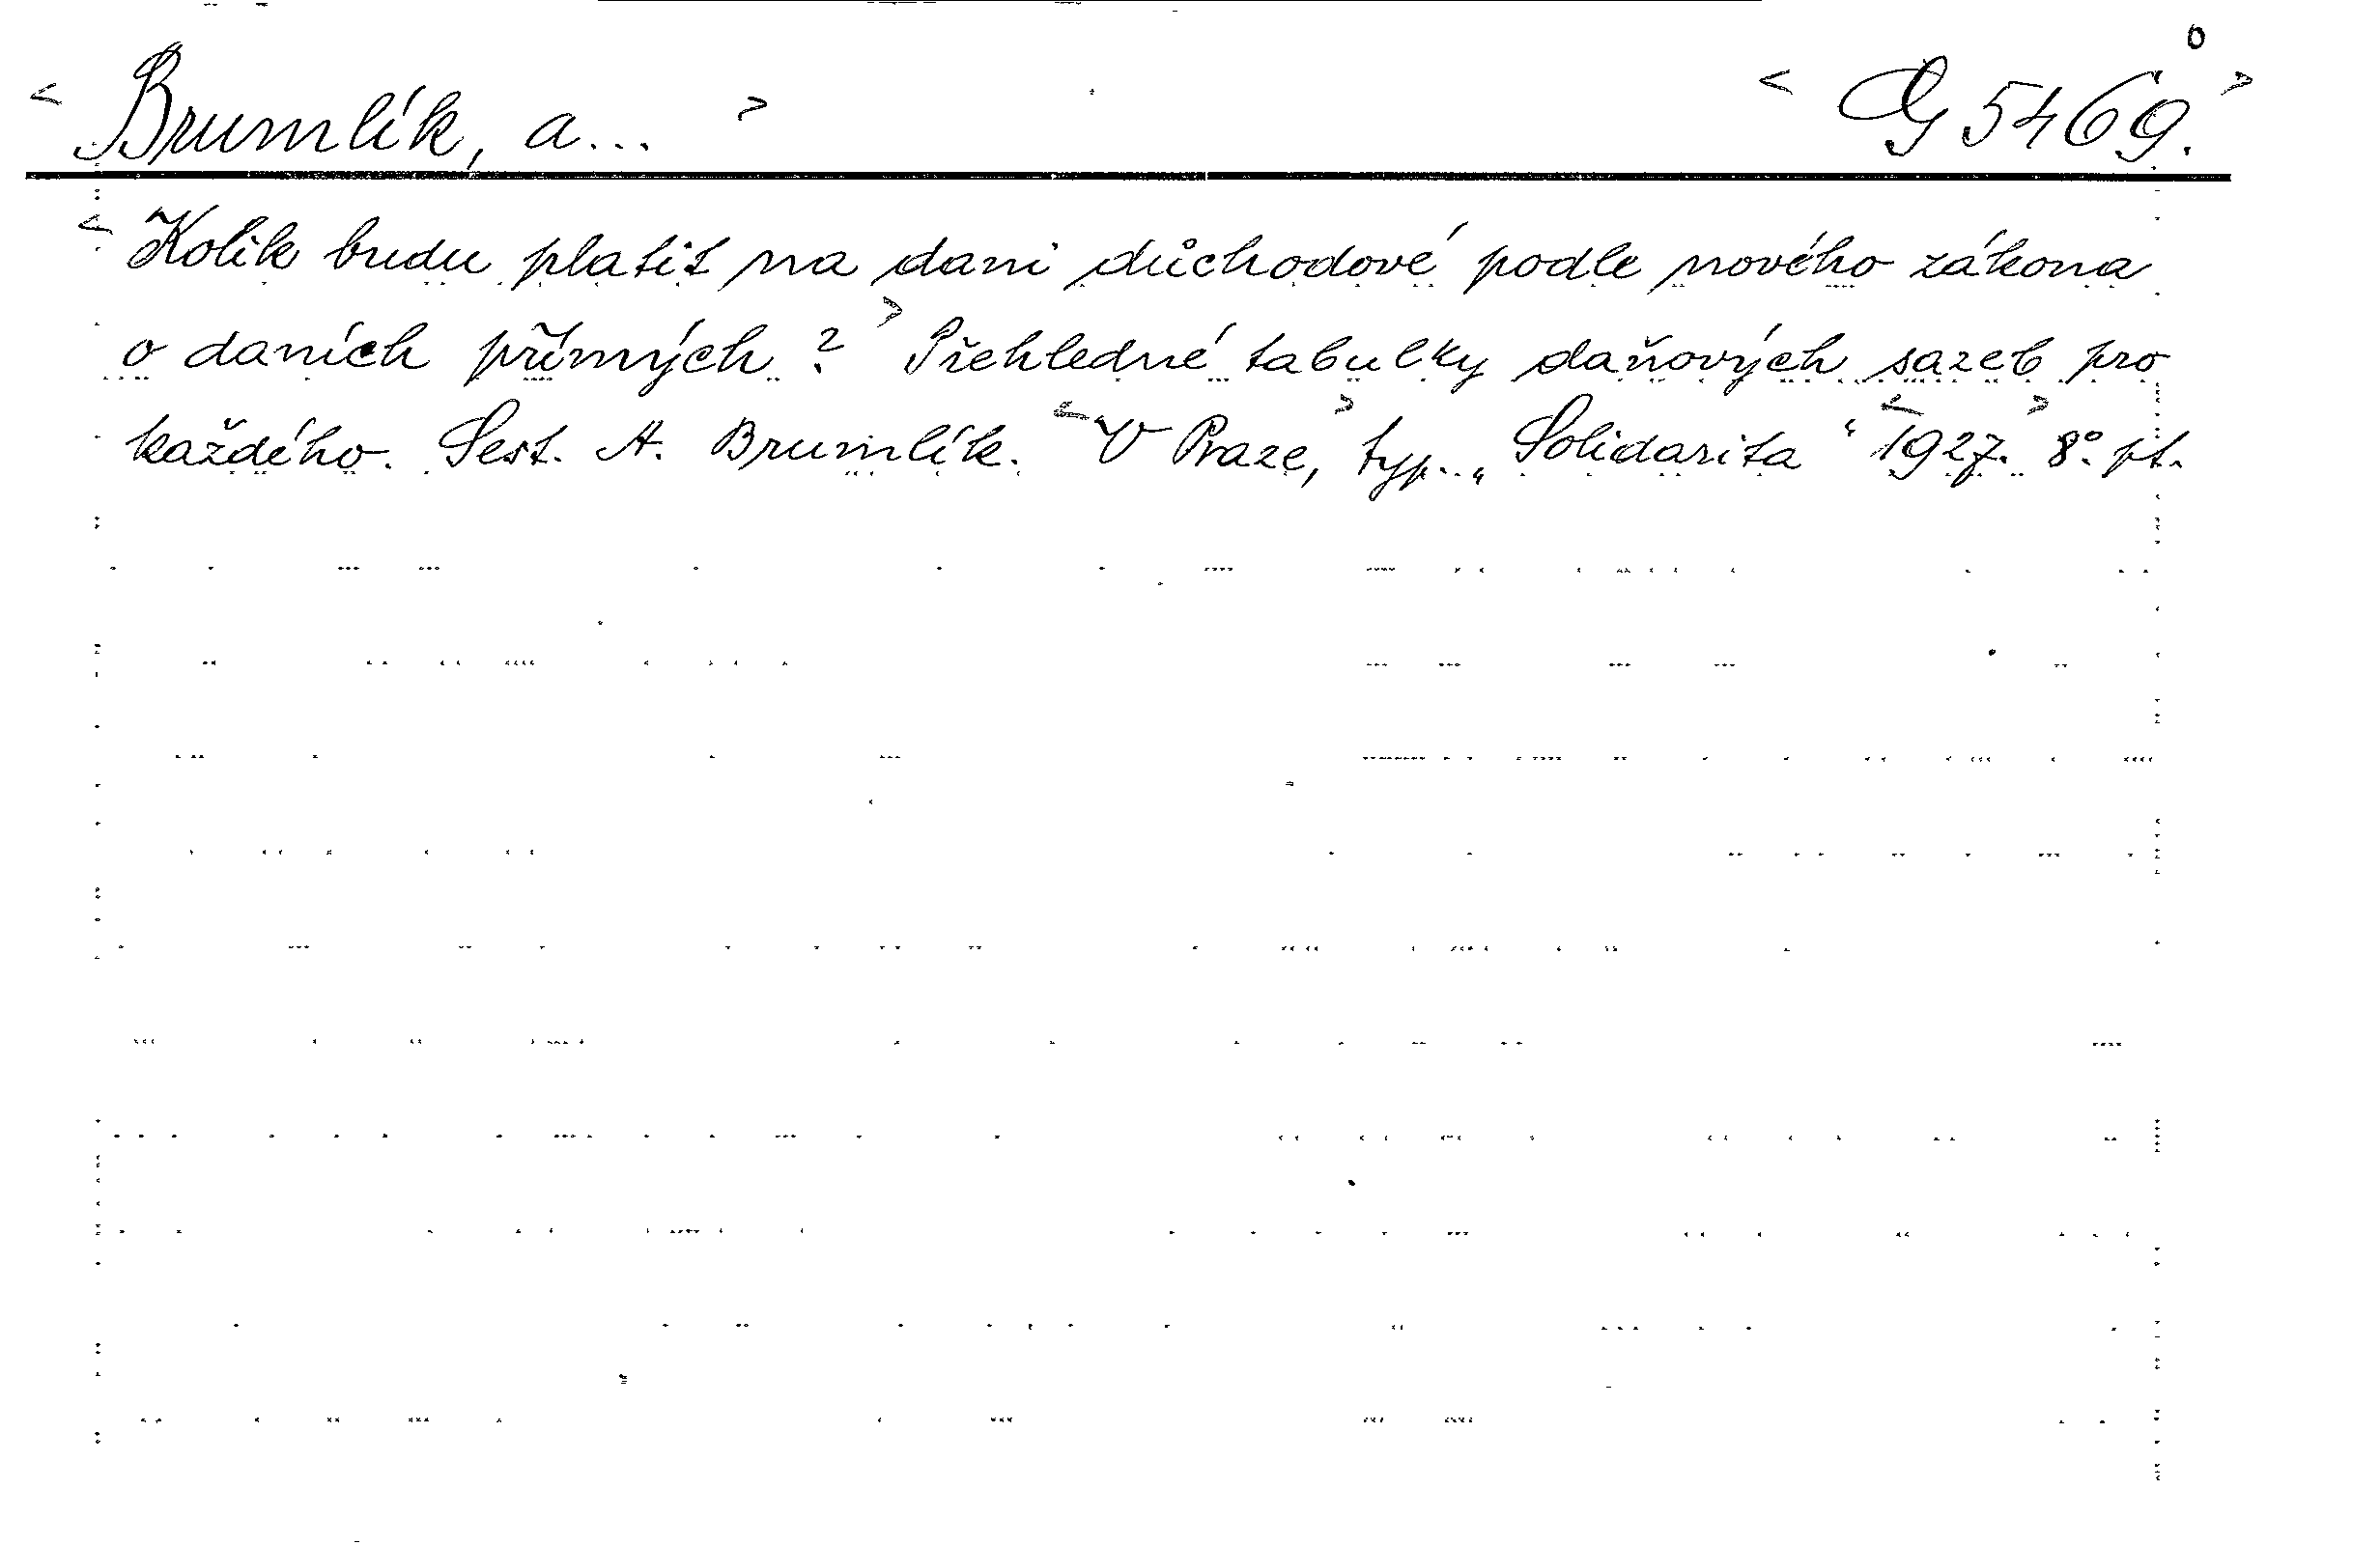 o
< Brumlík, a... > < G 5469. >
< Kolik budu platit na dani důchodové podle nového zákona
o daních přímých? > Přehledné tabulky daňových sazeb pro
každého. Sest. A. Brumlík. < V Praze, > typ. „Solidarita“ < 1927. > 8°. pt.